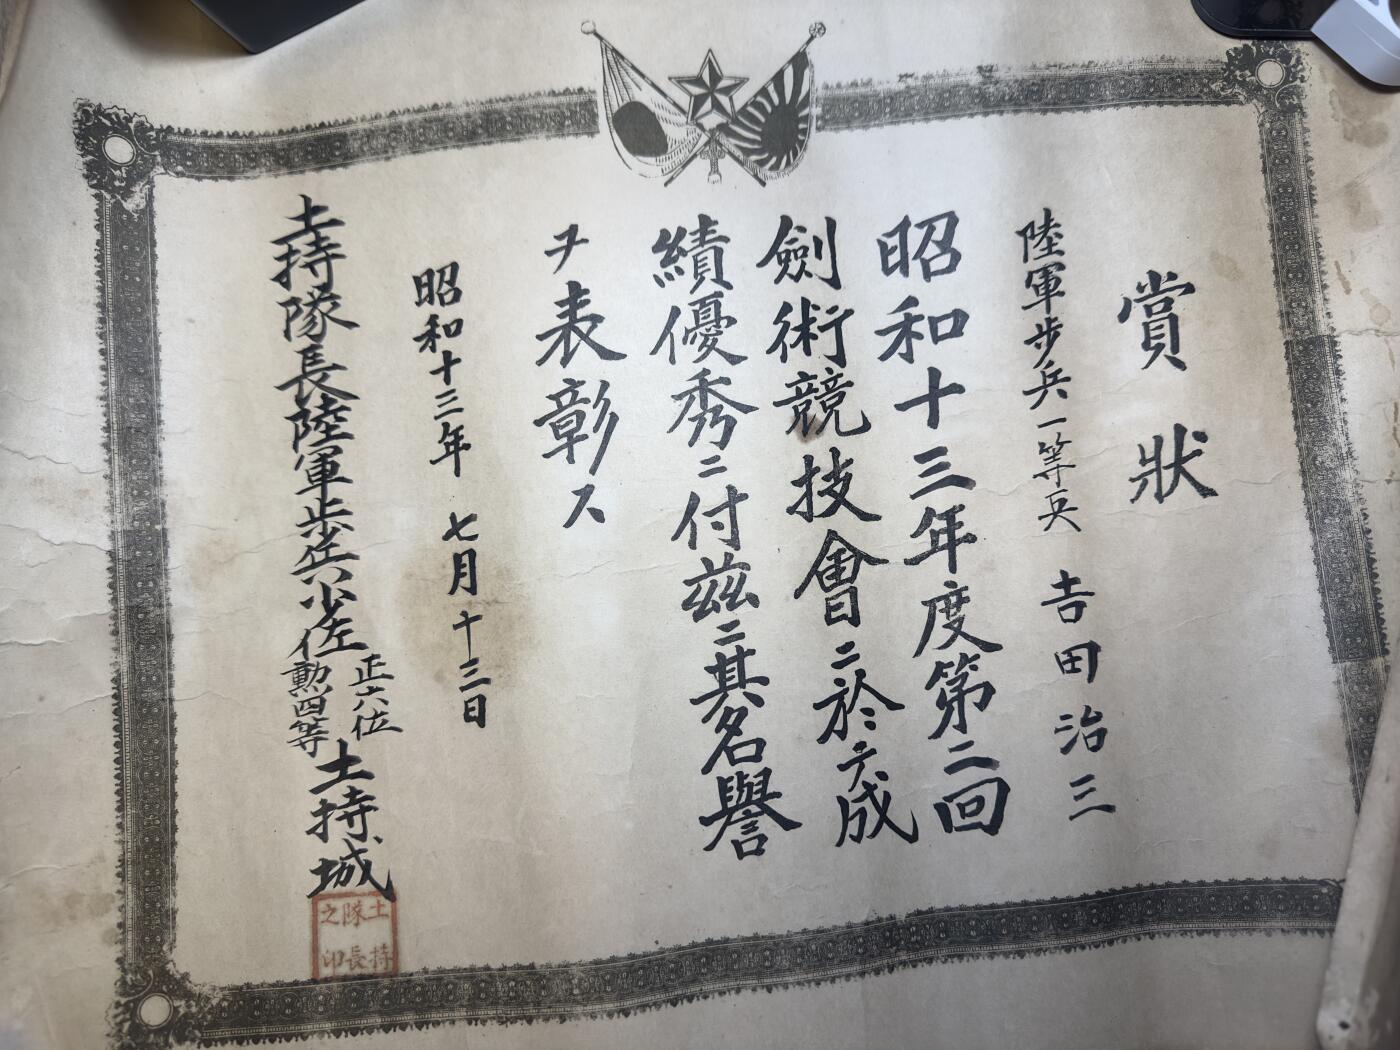 賞狀
陸軍步兵一等兵 吉田治三
昭和十三年度第二回
劍術競技會ニ於テ成
績優秀ニ付茲ニ其名譽
ヲ表彰ス
昭和十三年 七月十三日
土持隊長陸軍步兵少佐 正六位 勳四等 土持城
土持
隊長
之印